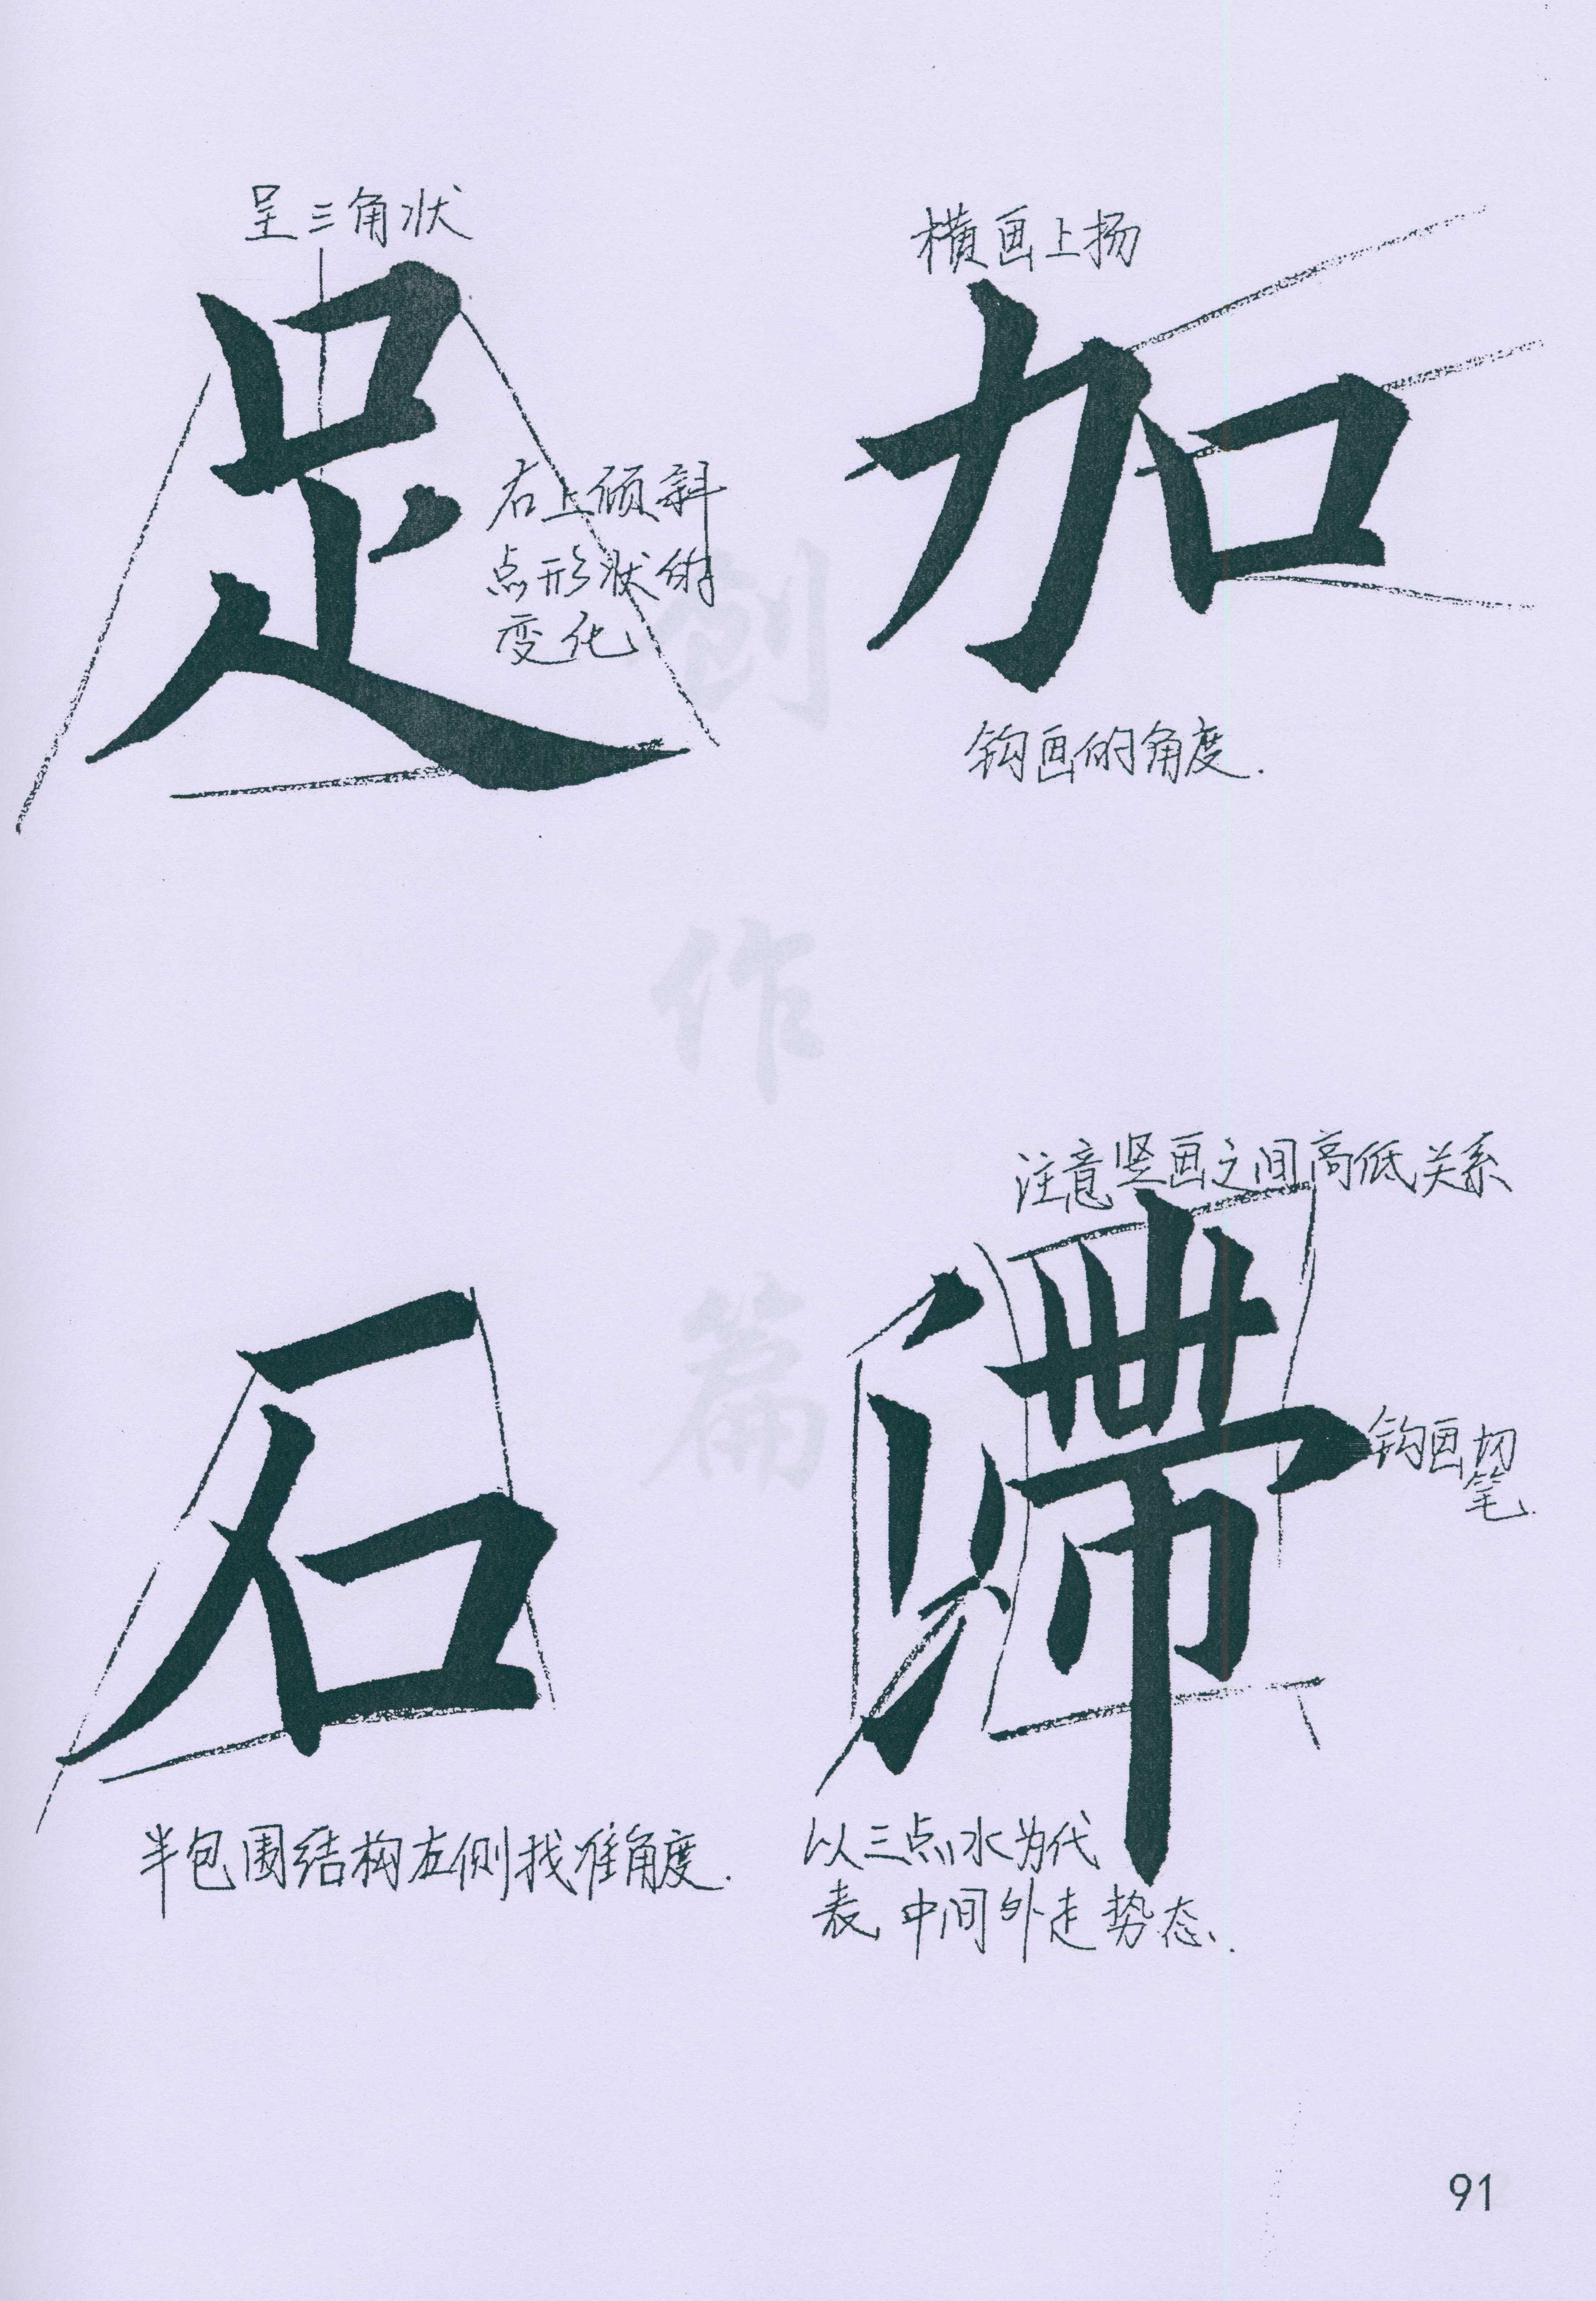 呈三角状
足
右上倾斜
点形状的
变化
横画上扬
加
钩画的角度.
创
作
篇
石
半包围结构左侧找准角度.
注意竖画之间高低关系
滞
钩画切
笔.
以三点水为代
表,中间外走势态.
91